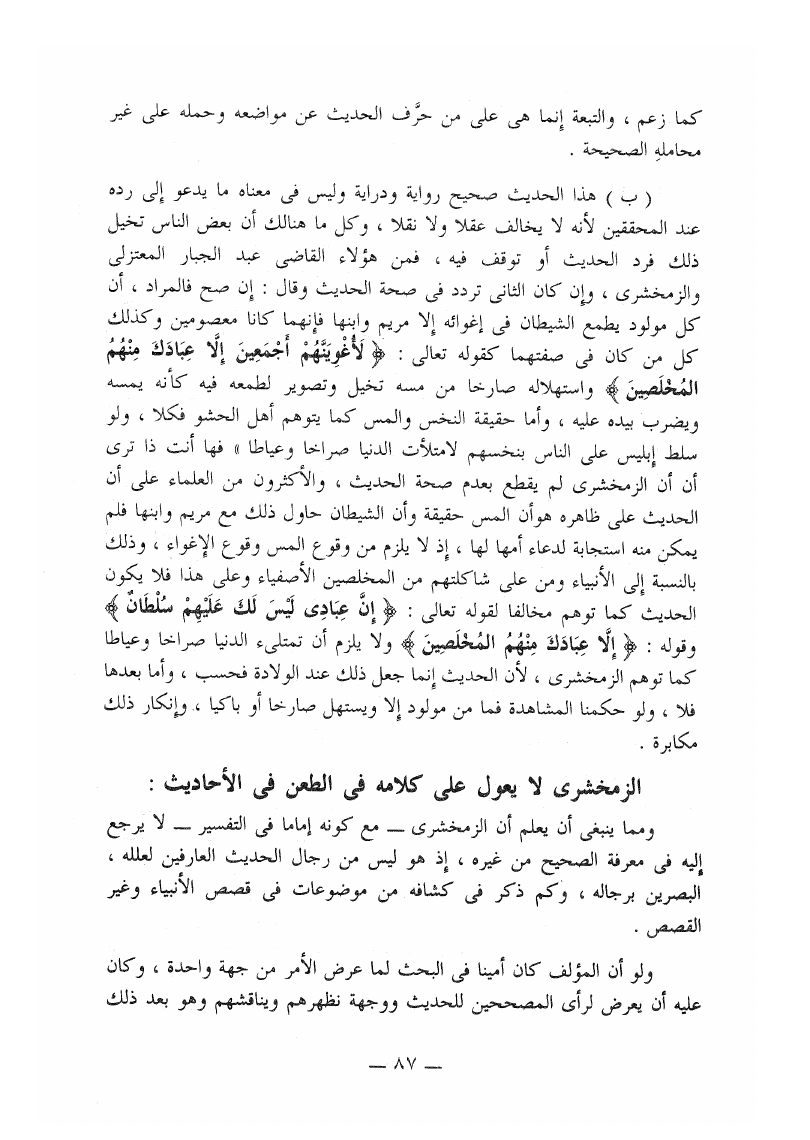 كما زعم ، والتبعة إنما هى على من حرَّف الحديث عن مواضعه وحمله على غير
محاملهِ الصحيحة .
( ب ) هذا الحديث صحيح رواية ودراية وليس فى معناه ما يدعو إلى رده
عند المحققين لأنه لا يخالف عقلا ولا نقلا ، وكل ما هنالك أن بعض الناس تخيل
ذلك فرد الحديث أو توقف فيه ، فمن هؤلاء القاضى عبد الجبار المعتزلى
والزمخشرى ، وإن كان الثانى تردد فى صحة الحديث وقال : إن صح فالمراد ، أن
كل مولود يطمع الشيطان فى إغوائه إلا مريم وابنها فإنهما كانا معصومين وكذلك
كل من كان فى صفتهما كقوله تعالى : ﴿ لَأُغْوِيَنَّهُمْ أَجْمَعِينَ إِلَّا عِبَادَكَ مِنْهُمُ
المُخْلَصِينَ ﴾ واستهلاله صارخا من مسه تخيل وتصوير لطمعه فيه كأنه يمسه
ويضرب بيده عليه ، وأما حقيقة النخس والمس كما يتوهم أهل الحشو فكلا ، ولو
سلط إبليس على الناس بنخسهم لامتلأت الدنيا صراخا وعياطا » فها أنت ذا ترى
أن أن الزمخشرى لم يقطع بعدم صحة الحديث ، والأكثرون من العلماء على أن
الحديث على ظاهره هوأن المس حقيقة وأن الشيطان حاول ذلك مع مريم وابنها فلم
يمكن منه استجابة لدعاء أمها لها ، إذ لا يلزم من وقوع المس وقوع الإغواء ، وذلك
بالنسبة إلى الأنبياء ومن على شاكلتهم من المخلصين الأصفياء وعلى هذا فلا يكون
الحديث كما توهم مخالفا لقوله تعالى : ﴿ إِنَّ عِبَادِى لَيْسَ لَكَ عَلَيْهِمْ سُلْطَانٌ ﴾
وقوله : ﴿ إِلَّا عِبَادَكَ مِنْهُمُ المُخْلَصِينَ ﴾ ولا يلزم أن تمتلىء الدنيا صراخا وعياطا
كما توهم الزمخشرى ، لأن الحديث إنما جعل ذلك عند الولادة فحسب ، وأما بعدها
فلا ، ولو حكمنا المشاهدة فما من مولود إلا ويستهل صارخا أو باكيا ، وإنكار ذلك
مكابرة .
الزمخشرى لا يعول على كلامه فى الطعن فى الأحاديث :
ومما ينبغى أن يعلم أن الزمخشرى — مع كونه إماما فى التفسير — لا يرجع
إليه فى معرفة الصحيح من غيره ، إذ هو ليس من رجال الحديث العارفين لعلله ،
البصرين برجاله ، وكم ذكر فى كشافه من موضوعات فى قصص الأنبياء وغير
القصص .
ولو أن المؤلف كان أمينا فى البحث لما عرض الأمر من جهة واحدة ، وكان
عليه أن يعرض لرأى المصححين للحديث ووجهة نظهرهم ويناقشهم وهو بعد ذلك
— ٨٧ —